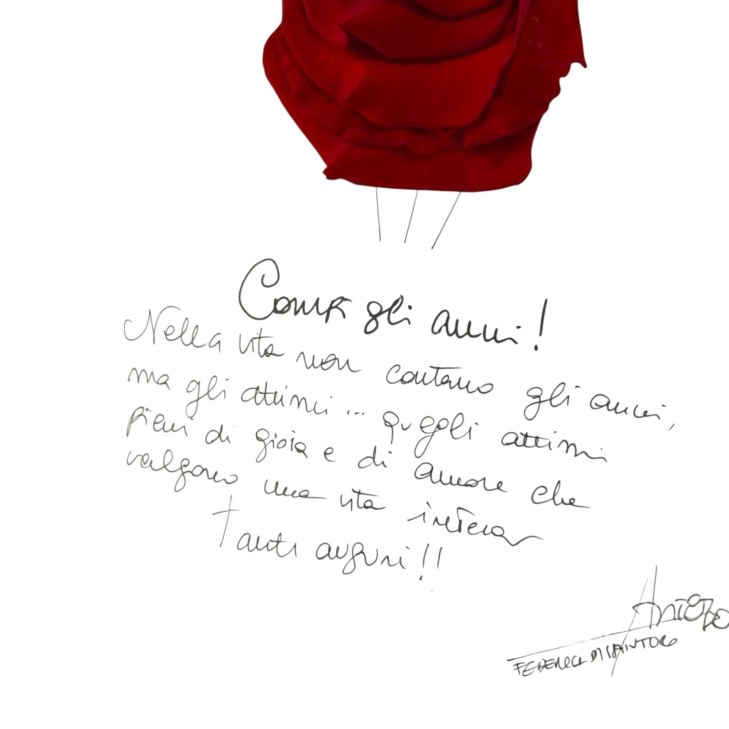 Compi gli anni!
Nella vita non contano gli anni,
ma gli attimi... quegli attimi
pieni di gioia e di amore che
valgono una vita intera
Tanti auguri!!